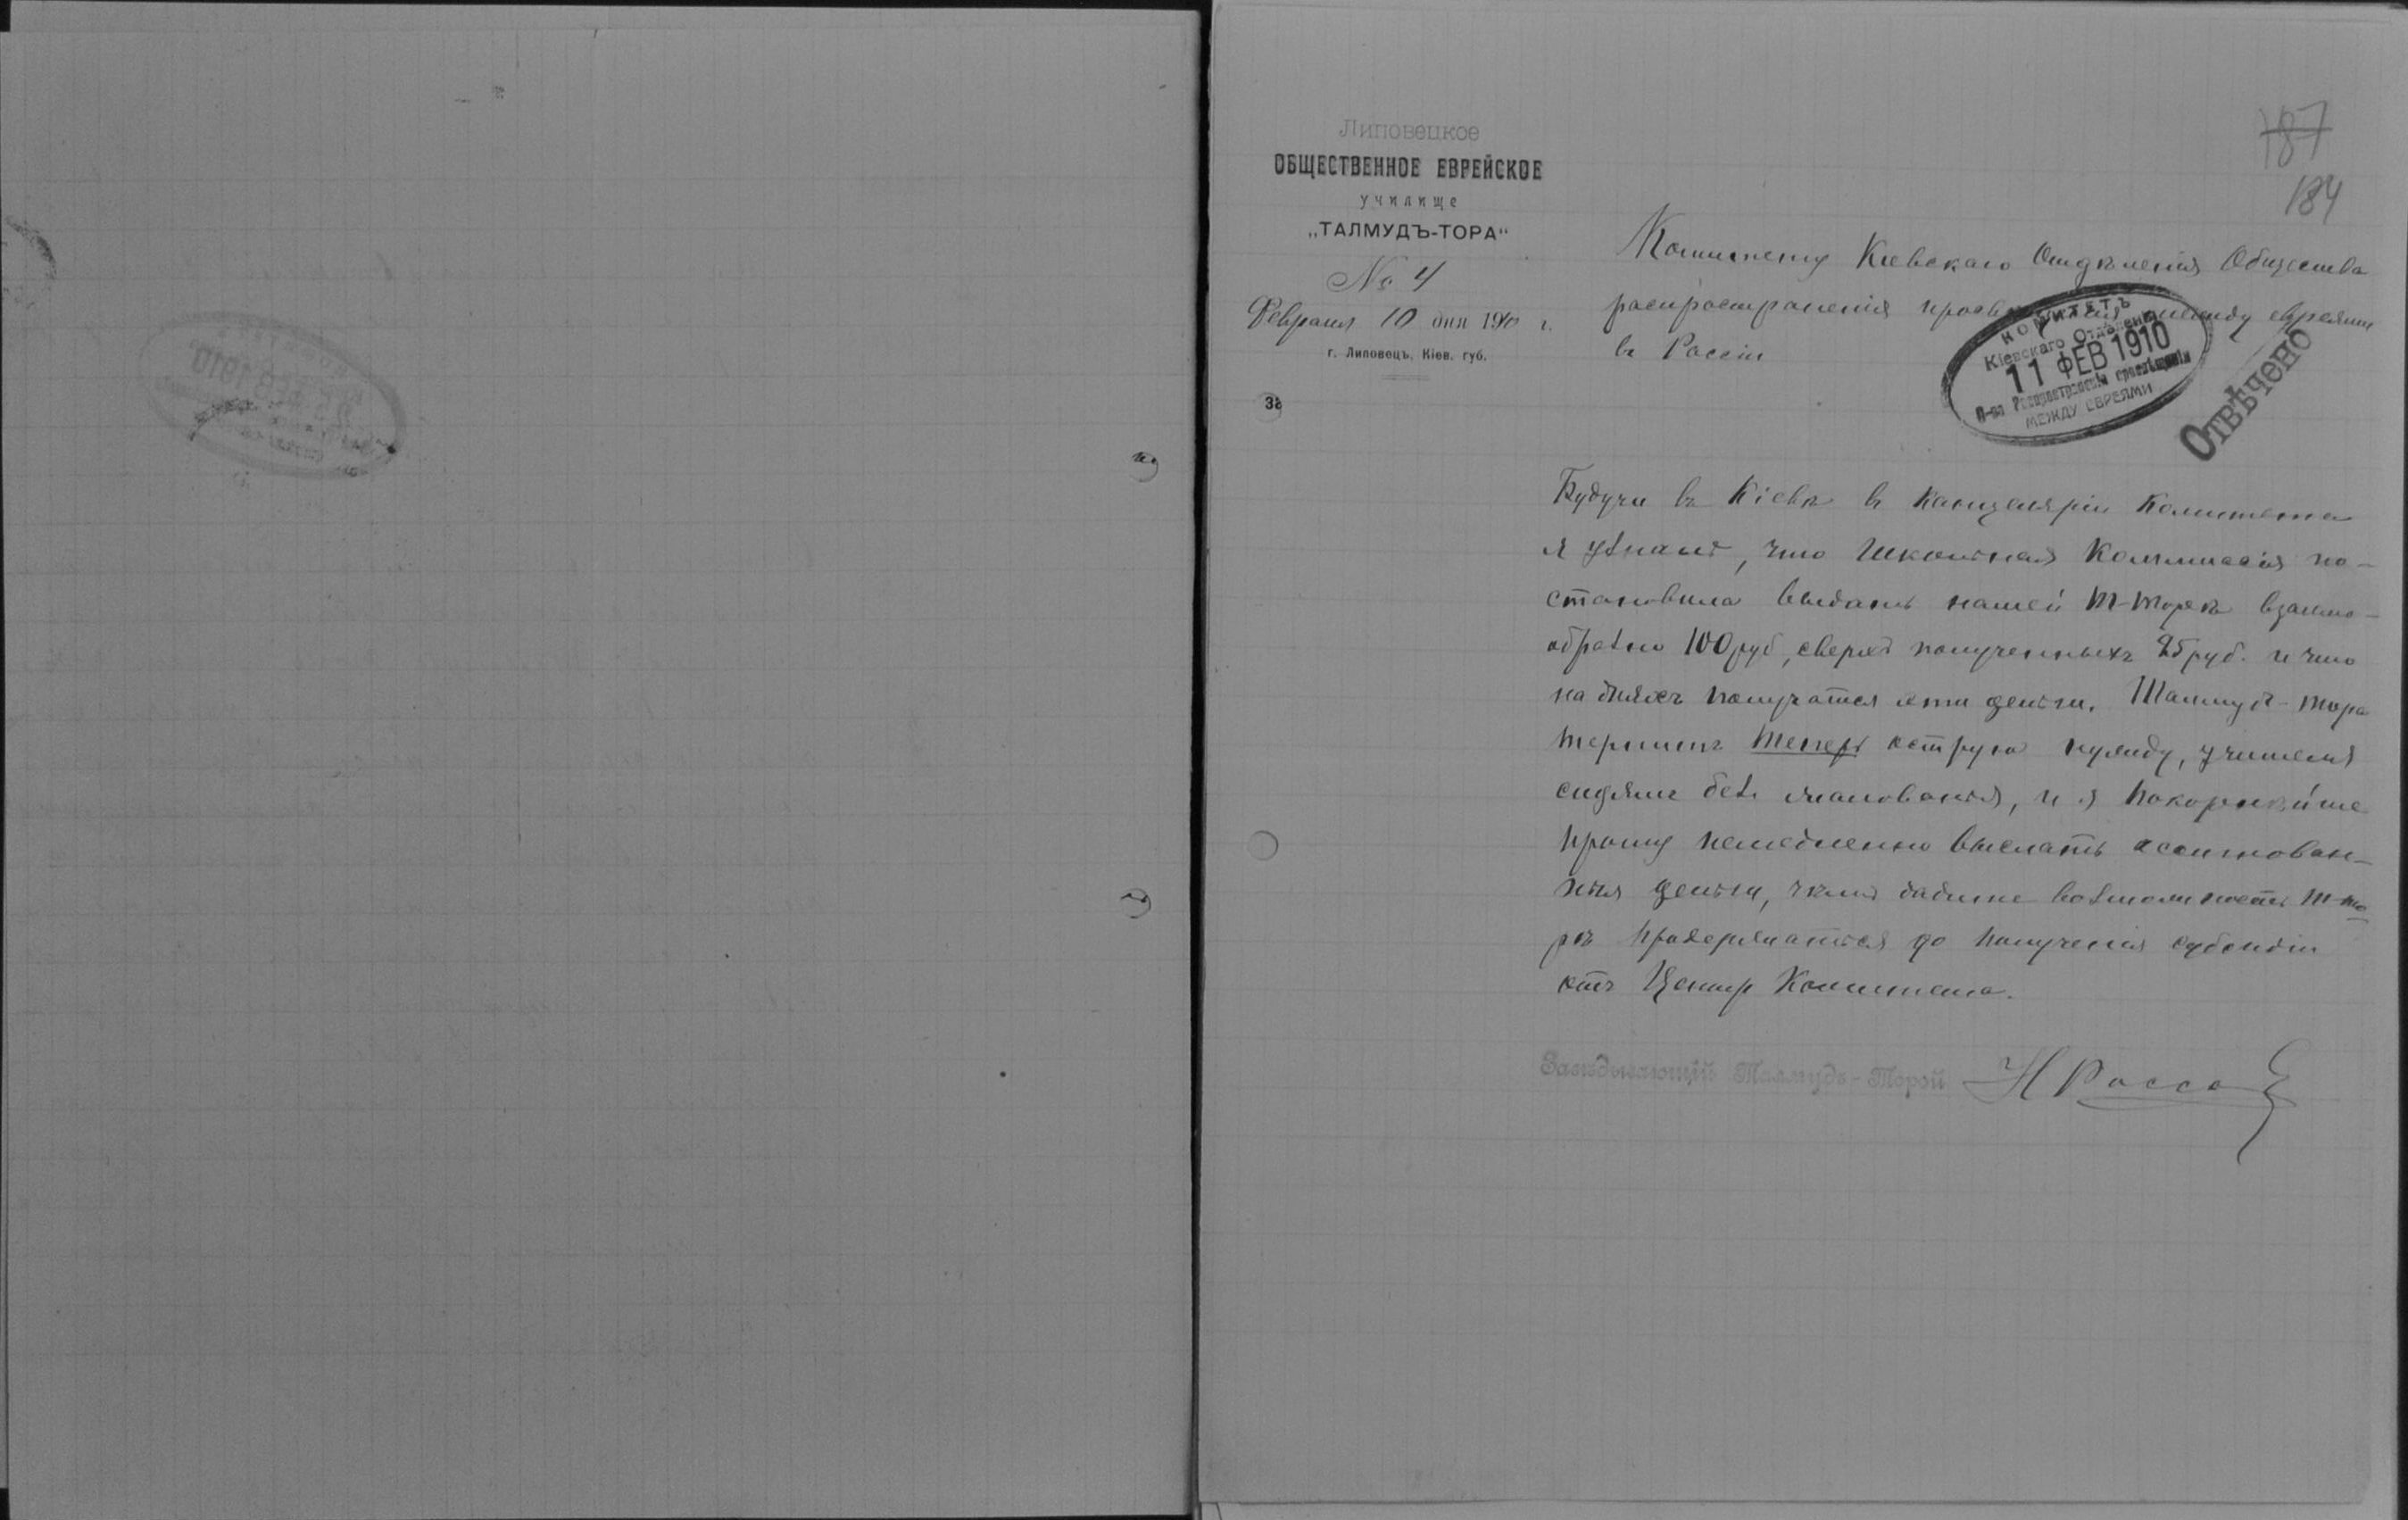 187
184
Липовецкое
ОБЩЕСТВЕННОЕ ЕВРЕЙСКОЕ
училище
„ТАЛМУДЪ-ТОРА“
№ 4
Февраля 10 дня 1910 г.
г. Липовецъ, Кіев. губ.
Комитету Кіевскаго Отдѣленія Общества
распространенія просвѣщенія между евреями
въ Россіи
КОМИТЕТЪ
Кіевскаго Отдѣленія
11 ФЕВ 1910
О-ва Распространенія просвѣщенія
МЕЖДУ ЕВРЕЯМИ
Отвѣчено
Будучи въ Кіевѣ въ канцеляріи Комитета
я узналъ, что Школьная Коммиссія по-
становила выдать нашей Т-Торѣ взаимо-
образно 100 руб, сверхъ полученныхъ 25 руб. и что
на дняхъ получатся эти деньги. Талмудъ-тора
терпитъ теперь острую нужду, учителя
сидятъ безъ жалованья, и я покорнѣйше
прошу немедленно выслать ассигнован-
ныя деньги, чѣмъ дадите возможность Т-то
рѣ продержаться до полученія субсидіи
отъ Центр Комитета.
Завѣдывающій Талмудъ-Торой Н Россо